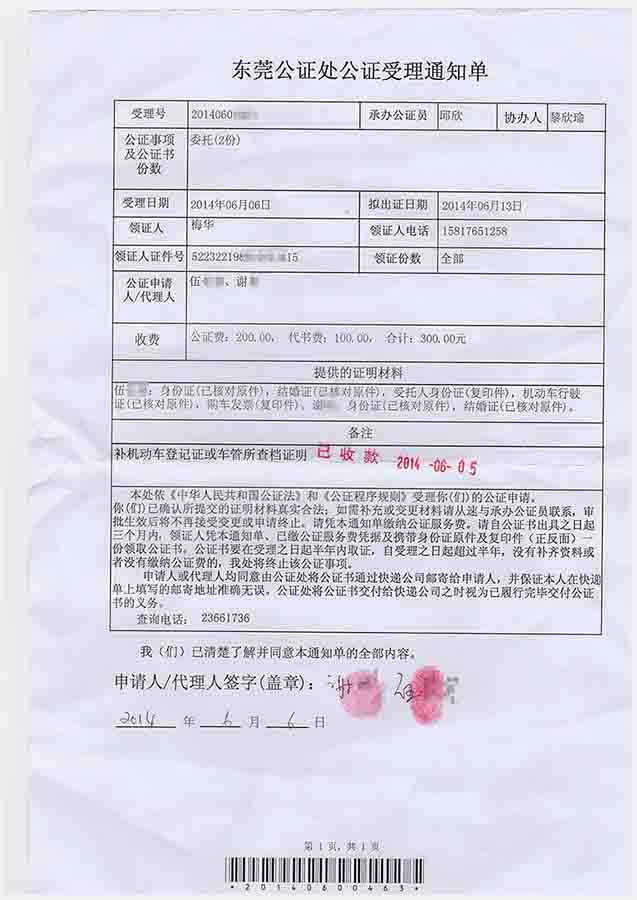 东莞公证处公证受理通知单
受理号 2014060 承办公证员 邱欣 协办人 黎欣瑜
公证事项及公证书份数 委托(2份)
受理日期 2014年06月06日 拟出证日期 2014年06月13日
领证人 梅华 领证人电话 15817651258
领证人证件号 52232219815 领证份数 全部
公证申请人/代理人 伍、谢
收费 公证费: 200.00, 代书费: 100.00, 合计: 300.00元
提供的证明材料
伍: 身份证(已核对原件), 结婚证(已核对原件), 受托人身份证(复印件), 机动车行驶
证(已核对原件), 购车发票(复印件)、谢 身份证(已核对原件), 结婚证(已核对原件)。
备注
补机动车登记证或车管所查档证明 已收款 2014-06-05
本处依《中华人民共和国公证法》和《公证程序规则》受理你(们)的公证申请。
你(们)已确认所提交的证明材料真实合法; 如需补充或变更材料请从速与承办公证员联系, 审
批生效后将不再接受变更或申请终止。请凭本通知单缴纳公证服务费。请自公证书出具之日起
三个月内, 领证人凭本通知单、已缴公证服务费凭据及携带身份证原件及复印件(正反面)一
份领取公证书。公证书要在受理之日起半年内取证, 自受理之日起超过半年, 没有补齐资料或
者没有缴纳公证费的, 我处将终止该公证事项。
申请人或代理人均同意由公证处将公证书通过快递公司邮寄给申请人, 并保证本人在快递
单上填写的邮寄地址准确无误。公证处将公证书交付给快递公司之时视为已履行完毕交付公证
书的义务。
查询电话: 23661736
我(们)已清楚了解并同意本通知单的全部内容。
申请人/代理人签字(盖章):
2014 年 6 月 6 日
第1页, 共1页
*20140600463*